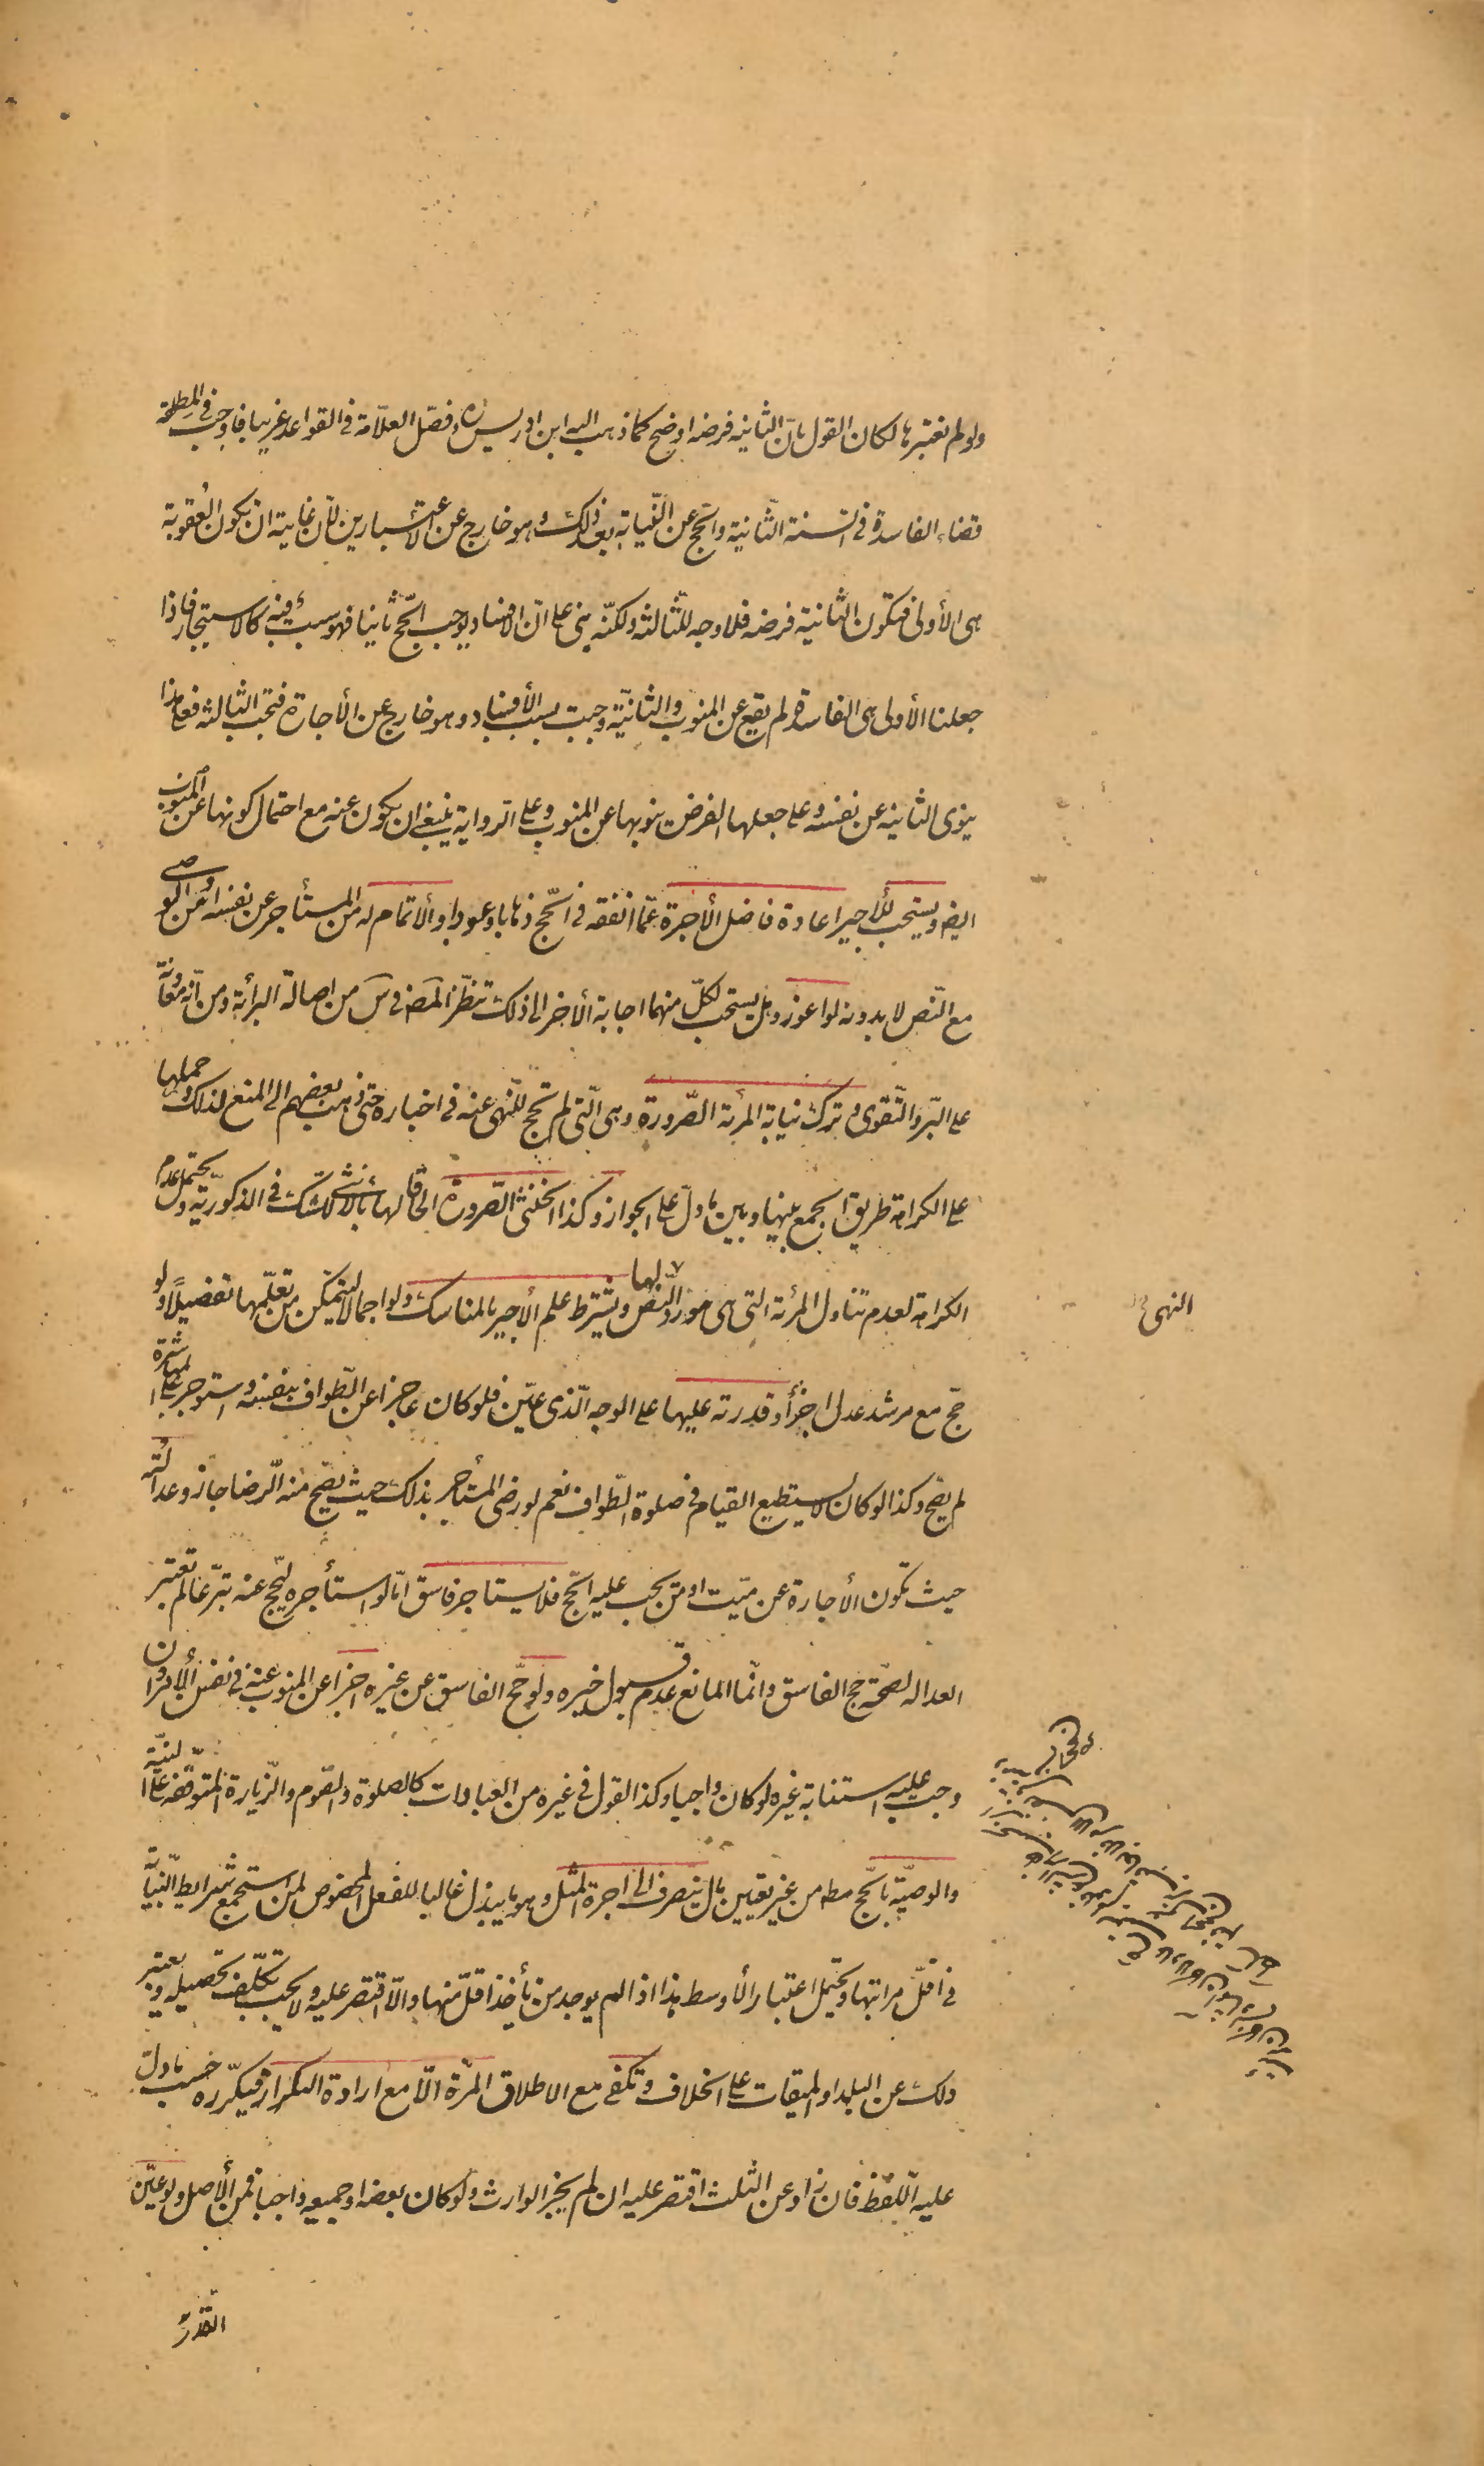 ولو لم نعتبرها لكان القول بانّ الثانية فرضه اوضح كما ذهب اليه ابن ادريس ره وفصّل العلّامة في القواعد غريبا فاوجب في المطلقة
قضاء الفاسدة في السنة الثّانية والحج عن النّيابة بعد ذلك وهو خارج عن الاعتبارين لأن غايته ان تكون العقوبة
هى الأولى فتكون الثانية فرضه فلا وجه للثّالثة ولكنّه بنى على انّ الافساد يوجب الحجّ ثانيا فهو سبب فيه كالاستيجار فاذا
جعلنا الأولى هى الفاسدة لم يقع عن المنوب والثانيّة وجبت بسبب الأفساد وهو خارج عن الأجارة فتجب الثالثة فعلى هذا
ينوى الثانية عن نفسه وعلى جعلها الفرض ينويها عن المنوب وعلى الرواية ينبغى ان يكون عنه مع احتمال كونها عن المنوب
ايضا ويستحب للأجير اعادة فاضل الأجرة عمّا انفقه في الحّج ذهابا وعودا والاتمام له من المستأجر عن نفسه او من الوصى
مع النّص لا بدونه لو اعوز وهل يستحب لكلّ منهما اجابة الأخر الى ذلك تنظّر المص في س من اصالة البرائة ومن انّه معاونة
على البّر والتّقوى وترك نيابة المرئة الصّرورة وهى الّتى لم تحج للنّهى عنه في اخبار حتى ذهب بعضهم الى المنع لذلك وحملها
على الكراهة طريق الجمع بينها وبين ما دلّ على الجواز وكذا الخنثى الصّرورة الحاقا لها بالأنثى للشك في الذكوريّة ويحتمل عدم
الكراهة لعدم تناول المرئة التى هى مورد النّص لها ويشترط علم الأجير بالمناسك ولو اجمالا ليتمكّن من تعلّمها تفصيلًا ولو
حجّ مع مرشد عدل اجزأ وقدرته عليها على الوجه الّذى عيّن فلو كان عاجزا عن الطّواف بنفسه واستوجر على المباشرة
لم يصح وكذا لو كان لا يستطيع القيام في صلوة الطّواف نعم لو رضى المستأجر بذلك حيث يصّح منه الّرضا جاز وعدالته
حيث تكون الأجارة عن ميّت او من يجب عليه الحّج فلا يستاجر فاسق امّا لو استأجره ليحّج عنه تبرّعا لم تعتبر
العدالة لصحّة حج الفاسق وانّما المانع عدم قبول خبره ولو حّج الفاسق عن غيره اجزا عن المنوب عنه في نفس الأمر وان
وجب عليه استنابة غيره لو كان واجبا وكذا القول في غيره من العبادات كالصلوة والصّوم والزّيارة المتوقّفة على النيّة
والوصيّة بالحّج مطه من غير تعيين مال ينصرف الى اجرة المثل وهو ما يبذل غالبا للفعل المخصوص لمن استجمع شرايط النّيابة
في اقلّ مراتبها ويحتمل اعتبار الأوسط هذا اذا لم يوجد من يأخذ اقلّ منها والّا اقتصر عليه ولا يجب تكلّف تحصيله ويعتبر
ذلك عن البلد او الميقات على الخلاف وتكفى مع الاطلاق المرّة الّا مع ارادة التكرار فيكّرره حسب ما دلّ
عليه اللّفظ فان زاد عن الثلث اقتصر عليه ان لم يجز الوارث ولو كان بعضه او جميعه واجبا فمن الأصل ولو عيّن
القدر
النهى